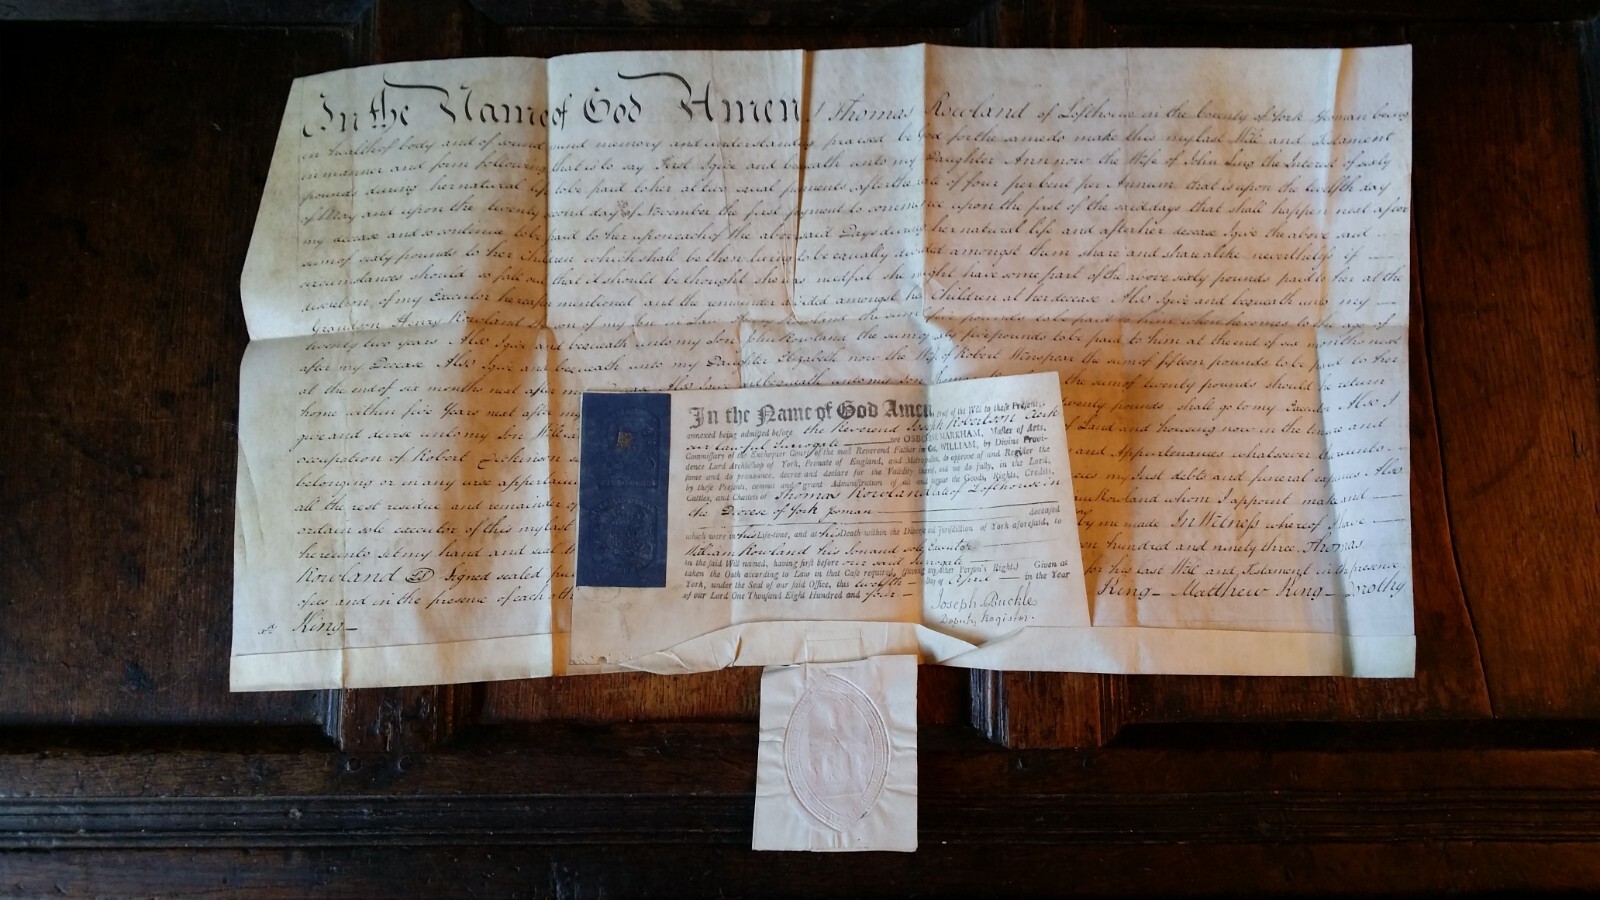 In the Name of God Amen I Thomas Rowland of Lofthouse in the County of York Yeoman being
in health of body and of sound mind memory and understanding praised be God for the same do make this my last Will and Testament
in manner and form following that is to say First I give and bequeath unto my Daughter Ann now the Wife of John Ling the Interest of sixty
pounds during her natural life to be paid to her at two equal payments after the rate of four per bent per Annum that is upon the twelfth day
of May and upon the twenty second day of November the first payment to commence upon the first of the said days that shall happen next after
my decease and so continue to be paid to her upon each of the abovesaid Days during her natural life and after her decease I give the above said
sum of sixty pounds to her Children which shall be then living to be equally divided amongst them share and share alike nevertheless if
circumstances should so fall out that it should be thought she was needful she might have some part of the above sixty pounds paid to her at the
discretion of my Executor hereafter mentioned and the remainder divided amongst her Children at her decease Also I give and bequeath unto my
Grandson Henry Rowland the son of my Son in Law Rowland the sum of five pounds to be paid to him when he comes to the age of
twenty two years Also I give and bequeath unto my Son John Rowland the sum of sixty five pounds to be paid to him at the end of six months next
after my Decease Also I give and bequeath unto my Daughter Elizabeth now the Wife of Robert Winspear the sum of fifteen pounds to be paid to her
at the end of six months next after my decease Also I give and bequeath unto my son Thomas the sum of twenty pounds should he return
home within five Years next after my twenty pounds shall go to my Executor Also I
give and devise unto my Son William of Land and housing now in the tenure and
occupation of Robert Dickinson and Appurtenances whatsoever thereunto
belonging or in any wise appertaining my Just debts and funeral expenses Also
all the rest residue and remainder of Rowland whom I appoint make and
ordain sole executor of this my last by me made In Witness whereof I have
hereunto set my hand and seal hundred and ninety three Thomas
Rowland Signed sealed for his last Will and Testament in the presence
of us and in the presence of each other King Matthew King Dorothy
King
In the Name of God Amen,
annexed being admitted before the Reverend Joseph Robertson Clerk
our lawful Surrogate we OSBORNE MARKHAM, Master of Arts,
Commissary of the Exchequer Court of the most Reverend Father in God, WILLIAM, by Divine Provi-
dence Lord Archbishop of York, Primate of England, and Metropolitan, to approve of and Register the
same and to pronounce, decree and declare for the Validity thereof, did and do fully, in the Lord,
by these Presents, commit and grant Administration of all and singular the Goods, Rights, Credits,
Cattles, and Chattels of Thomas Rowland late of Lofthouse in
the Diocese of York Yeoman deceased
which were in his Life-time, and at his Death within the Diocese and Jurisdiction of York aforesaid, to
William Rowland his Son and sole Executor
in the said Will named, having first before our said Surrogate
taken the Oath according to Law in that Case required, (saving any other Person's Rights) Given at
York, under the Seal of our said Office, this twelfth Day of April in the Year
of our Lord One Thousand Eight Hundred and four
Joseph Buckle
Deputy Register.